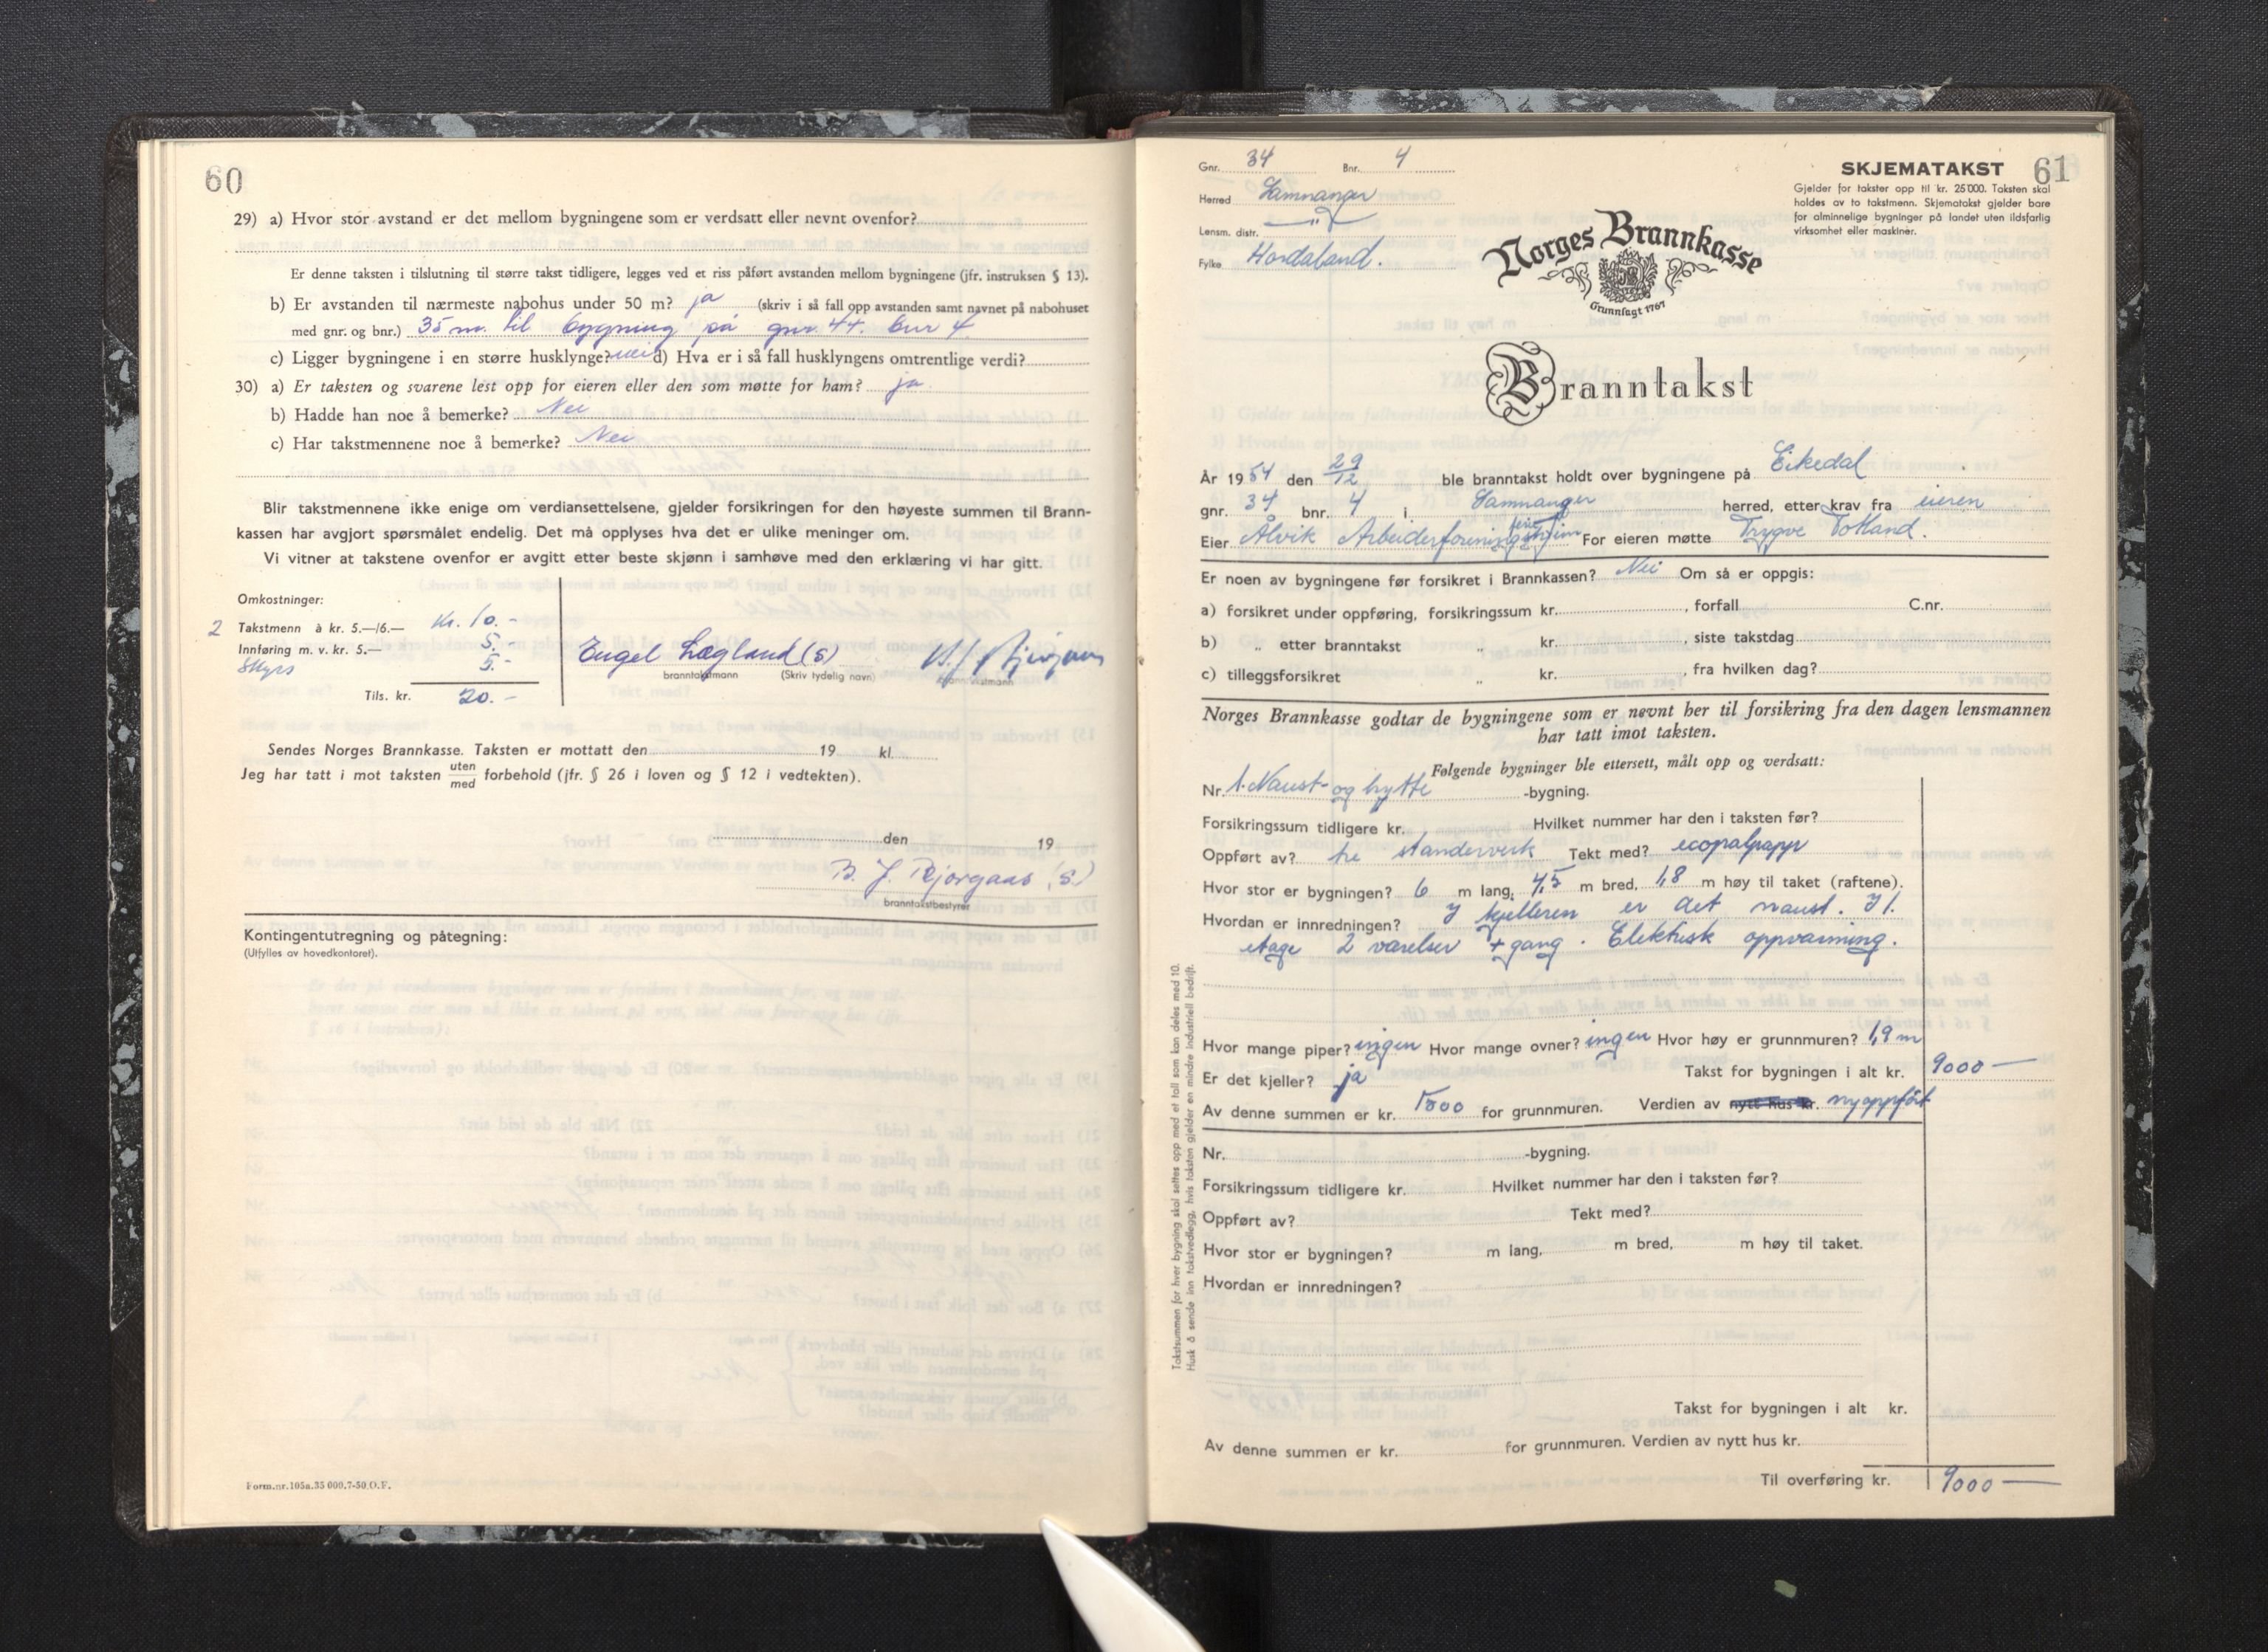 60
29) a) Hvor stor avstand er det mellom bygningene som er verdsatt eller nevnt ovenfor?
Er denne taksten i tilslutning til større takst tidligere, legges ved et riss påført avstanden mellom bygningene (jfr. instruksen § 13).
b) Er avstanden til nærmeste nabohus under 50 m? ja (skriv i så fall opp avstanden samt navnet på nabohuset
med gnr. og bnr.) 35 m. til bygning på gnr. 44. bnr 4
c) Ligger bygningene i en større husklynge? nei d) Hva er i så fall husklyngens omtrentlige verdi?
30) a) Er taksten og svarene lest opp for eieren eller den som møtte for ham? ja.
b) Hadde han noe å bemerke? Nei
c) Har takstmennene noe å bemerke? Nei
Blir takstmennene ikke enige om verdiansettelsene, gjelder forsikringen for den høyeste summen til Brann-
kassen har avgjort spørsmålet endelig. Det må opplyses hva det er ulike meninger om.
Vi vitner at takstene ovenfor er avgitt etter beste skjønn i samhøve med den erklæring vi har gitt.
Omkostninger:
2 Takstmenn à kr. 5.—/6.— Kr. 10.-
Innføring m. v. kr. 5.— 5.-
Skyss 5.-
Tils. kr. 20.-
Engel Lægland (s)
branntakstmann (Skriv tydelig navn) branntakstmann
Sendes Norges Brannkasse. Taksten er mottatt den 19 kl.
Jeg har tatt i mot taksten uten med forbehold (jfr. § 26 i loven og § 12 i vedtekten).
den 19
B. J. Bjørgaas (s)
branntakstbestyrer
Kontingentutregning og påtegning:
(Utfylles av hovedkontoret).
Form.nr.105a.35 000.7-50.O.F.
Gnr. 34 Bnr. 4
Herred Samnanger
Lensm. distr. — " —
Fylke Hordaland.
SKJEMATAKST 61
Gjelder for takster opp til kr. 25 000. Taksten skal
holdes av to takstmenn. Skjematakst gjelder bare
for alminnelige bygninger på landet uten ildsfarlig
virksomhet eller maskiner.
Norges Brannkasse
Grunnlagt 1767
Branntakst
År 1954 den 29/12 ble branntakst holdt over bygningene på Eikedal
gnr. 34 bnr. 4 i Samnanger herred, etter krav fra eieren
Eier Ålvik Arbeiderforenings feriehjem For eieren møtte Trygve Totland.
Er noen av bygningene før forsikret i Brannkassen? Nei Om så er oppgis:
a) forsikret under oppføring, forsikringssum kr. , forfall C.nr.
b) „ etter branntakst „ kr. , siste takstdag
c) tilleggsforsikret „ kr. , fra hvilken dag?
Norges Brannkasse godtar de bygningene som er nevnt her til forsikring fra den dagen lensmannen
har tatt imot taksten.
Følgende bygninger ble ettersett, målt opp og verdsatt:
Nr. 1. Naust- og hytte -bygning.
Forsikringssum tidligere kr. Hvilket nummer har den i taksten før?
Oppført av? tre standerverk Tekt med? ecopalpapp
Hvor stor er bygningen? 6 m lang, 4,5 m bred, 1,8 m høy til taket (raftene).
Hvordan er innredningen? I kjelleren er det naust. I 1.
etage 2 værelser + gang. Elektrisk oppvarming.
Hvor mange piper? ingen Hvor mange ovner? ingen Hvor høy er grunnmuren? 1,9 m
Er det kjeller? ja Takst for bygningen i alt kr. 9000 —
Av denne summen er kr. 1000 for grunnmuren. Verdien av nytt hus kr. nyoppført
Nr. -bygning.
Forsikringssum tidligere kr. Hvilket nummer har den i taksten før?
Oppført av? Tekt med?
Hvor stor er bygningen? m lang, m bred, m høy til taket.
Hvordan er innredningen?
Takst for bygningen i alt kr.
Av denne summen er kr. for grunnmuren. Verdien av nytt hus kr.
Til overføring kr. 9000 —
Takstsummen for hver bygning skal settes opp med et tall som kan deles med 10.
Husk å sende inn takstvedlegg, hvis taksten gjelder en mindre industriell bedrift.